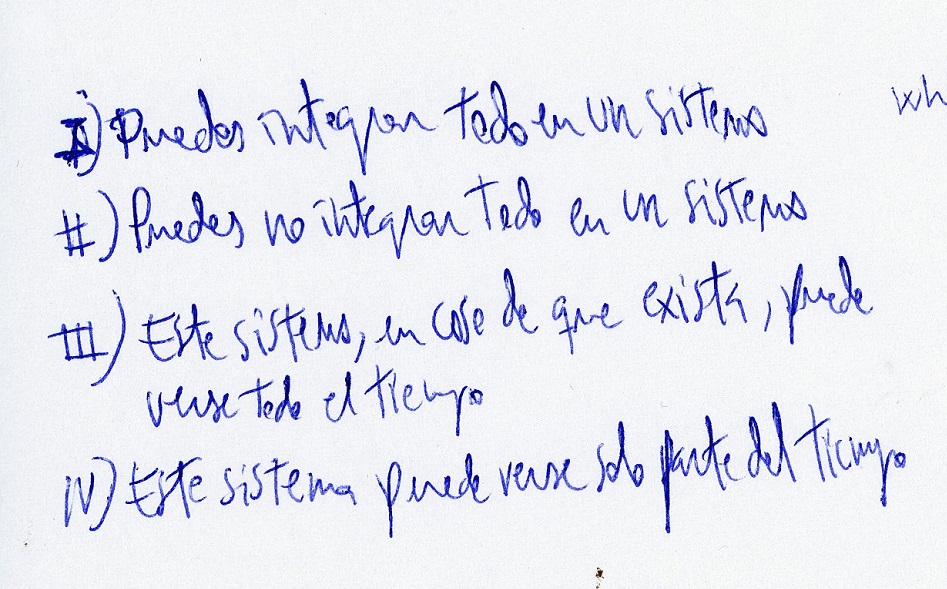 I) Puedes integrar todo en un sistema
wh
II) Puedes no integrar todo en un sistema
III) Este sistema, en caso de que exista, puede
verse todo el tiempo
IV) Este sistema puede verse solo parte del tiempo